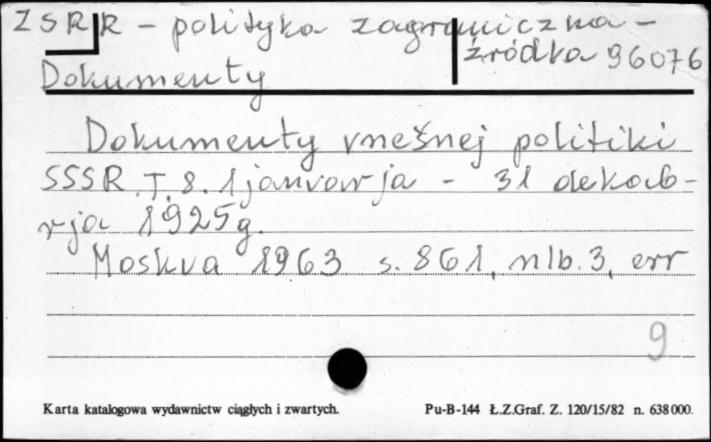 ZSRR - polityka zagraniczna -
źródła 96076
Dokumenty
Dokumenty vnešnej politiki
SSSR. T. 8. 1 janvarja - 31 dekab-
rja 1925 g.
Moskva 1963 s. 861, nlb. 3, err
9
Karta katalogowa wydawnictw ciągłych i zwartych. Pu-B-144 Ł.Z.Graf. Z. 120/15/82 n. 638000.